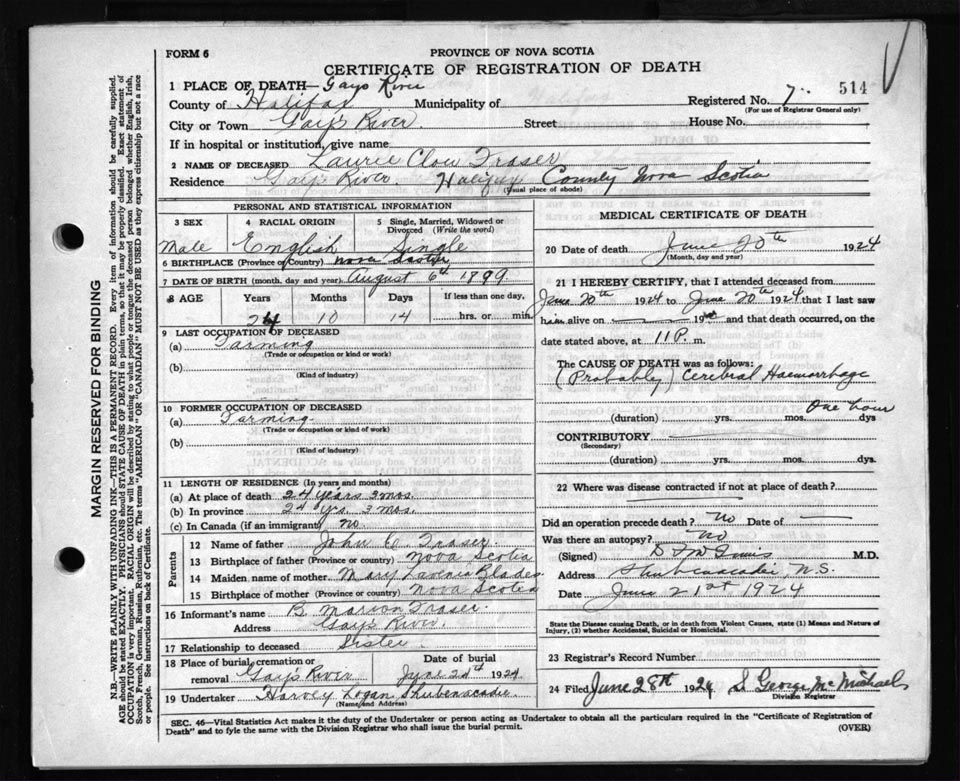 FORM 6
PROVINCE OF NOVA SCOTIA
CERTIFICATE OF REGISTRATION OF DEATH
514
1 PLACE OF DEATH— Gays River
County of Halifax Municipality of
Registered No. 7
(For use of Registrar General only)
City or Town Gays River. Street House No.
If in hospital or institution, give name
2 NAME OF DECEASED Laurie Clow Fraser
Residence Gays River Halifax County Nova Scotia
(Usual place of abode)
PERSONAL AND STATISTICAL INFORMATION
3 SEX 4 RACIAL ORIGIN 5 Single, Married, Widowed or Divorced (Write the word)
Male English Single
6 BIRTHPLACE (Province or Country) Nova Scotia
7 DATE OF BIRTH (month, day and year) August 6th 1899.
8 AGE Years Months Days If less than one day,
24 10 14 hrs. or min.
9 LAST OCCUPATION OF DECEASED
(a) Farming
(Trade or occupation or kind of work)
(b)
(Kind of industry)
10 FORMER OCCUPATION OF DECEASED
(a) Farming
(Trade or occupation or kind of work)
(b)
(Kind of industry)
11 LENGTH OF RESIDENCE (In years and months)
(a) At place of death 24 years 3 mos.
(b) In province 24 yrs. 3 mos.
(c) In Canada (if an immigrant) no
Parents
12 Name of father John C Fraser.
13 Birthplace of father (Province or country) Nova Scotia
14 Maiden name of mother Mary Blades
15 Birthplace of mother (Province or country) Nova Scotia
16 Informant's name B. Marion Fraser.
Address Gays River.
17 Relationship to deceased Sister
18 Place of burial, cremation or removal Gays River Date of burial June 1924
19 Undertaker Harvey Logan Shubenacadie
(Name and Address)
MEDICAL CERTIFICATE OF DEATH
20 Date of death June 20th 1924
(Month, day and year)
21 I HEREBY CERTIFY, that I attended deceased from
June 20th 1924 to June 20th 1924 that I last saw
him alive on — 19 and that death occurred, on the
date stated above, at 11 P. m.
The CAUSE OF DEATH was as follows:
(Probably) Cerebral Haemorrhage
One hour
(duration) yrs. mos. dys
CONTRIBUTORY —
(Secondary)
(duration) yrs. mos. dys.
22 Where was disease contracted if not at place of death?
Did an operation precede death? no Date of —
Was there an autopsy? no
(Signed) M.D.
Address Shubenacadie, N.S.
Date June 21st 1924
State the Disease causing Death, or in death from Violent Causes, state (1) Means and Nature of
Injury, (2) whether Accidental, Suicidal or Homicidal.
23 Registrars Record Number
24 Filed June 28th 1924 S George McMichael
Division Registrar
SEC. 46—Vital Statistics Act makes it the duty of the Undertaker or person acting as Undertaker to obtain all the particulars required in the "Certificate of Registration of
Death" and to fyle the same with the Division Registrar who shall issue the burial permit.
(OVER)
MARGIN RESERVED FOR BINDING
N.B.—WRITE PLAINLY WITH UNFADING INK—THIS IS A PERMANENT RECORD. Every item of information should be carefully supplied.
AGE should be stated EXACTLY. PHYSICIANS should STATE CAUSE OF DEATH in plain terms, so that it may be properly classified. Exact statement of
OCCUPATION is very important. RACIAL ORIGIN will be described by stating to what people or tongue the deceased person belonged whether English, Irish,
Scotch, French, German, Russian, Ruthenian, etc. The terms "AMERICAN" OR "CANADIAN" MUST NOT BE USED as they express citizenship but not a race
or people. See instructions on back of Certificate.